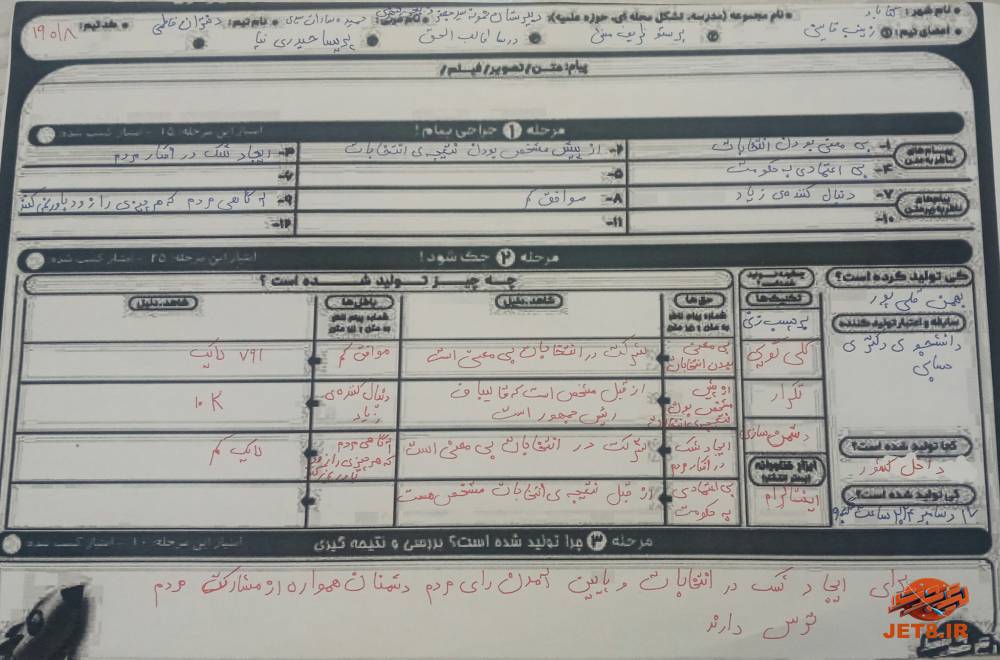 نام شهر: نام مجموعه (مدرسه، تشکل محله ای، حوزه علمیه): دبیرستان نمونه نام مربی: نام تیم: دختران فاطمی کد تیم: ۱۹۰۱۸
اعضای تیم: ۱ زینب قاینی ۲ پرستو ظریف منش درسا طالب الحق پریسا حیدری نیا
پیام: متن/تصویر/فیلم/
مرحله ۱ جراحی پیام! امتیاز این مرحله: ۱۵ - امتیاز کسب شده
پیام‌های ناظر به متن
۱- بی معنی بودن انتخابات ۲- از پیش مشخص بودن نتیجه ی انتخابات ۳- ایجاد شک در افکار مردم
۴- بی اعتمادی به حکومت ۵- ۶-
پیام‌های ناظر به فرامتن
۷- دنبال کننده ی زیاد ۸- موافق کم ۹- آگاهی مردم که هر چیزی را زود باور نمی‌کنند
۱۰- ۱۱- ۱۲-
مرحله ۲ حک شود! امتیاز این مرحله: ۲۵ - امتیاز کسب شده
کی تولید کرده است؟
بهمن قلی پور
سابقه و اعتبار تولید کننده
دانشجوی دکتری
کجا تولید شده است؟
داخل کشور
کی تولید شده است؟
چگونه تولید شده است؟
تکنیک‌ها
برچسب زنی
کلی گویی
تکرار
دشمن سازی
اینستاگرام
چه چیز تولید شده است؟
حق‌ها شاهد، دلیل باطل‌ها شاهد، دلیل
بی معنی بودن انتخابات شرکت در انتخابات بی معنی است موافق کم ۷۹۱ لایک
از پیش مشخص بودن نتیجه ی انتخابات از قبل مشخص است که قالیباف رئیس جمهور است دنبال کننده ی زیاد ۱۰K
ایجاد شک در افکار مردم شرکت در انتخابات بی معنی است آگاهی مردم که هر چیزی را زود لایک کم
بی اعتمادی به حکومت از قبل نتیجه ی انتخابات مشخص هست
مرحله ۳ چرا تولید شده است؟ بررسی و نتیجه گیری امتیاز این مرحله: ۱۰ - امتیاز کسب شده
برای ایجاد شک در انتخابات و پایین آمدن رای مردم دشمنان همواره از مشارکت مردم
ترس دارند
JET8.IR